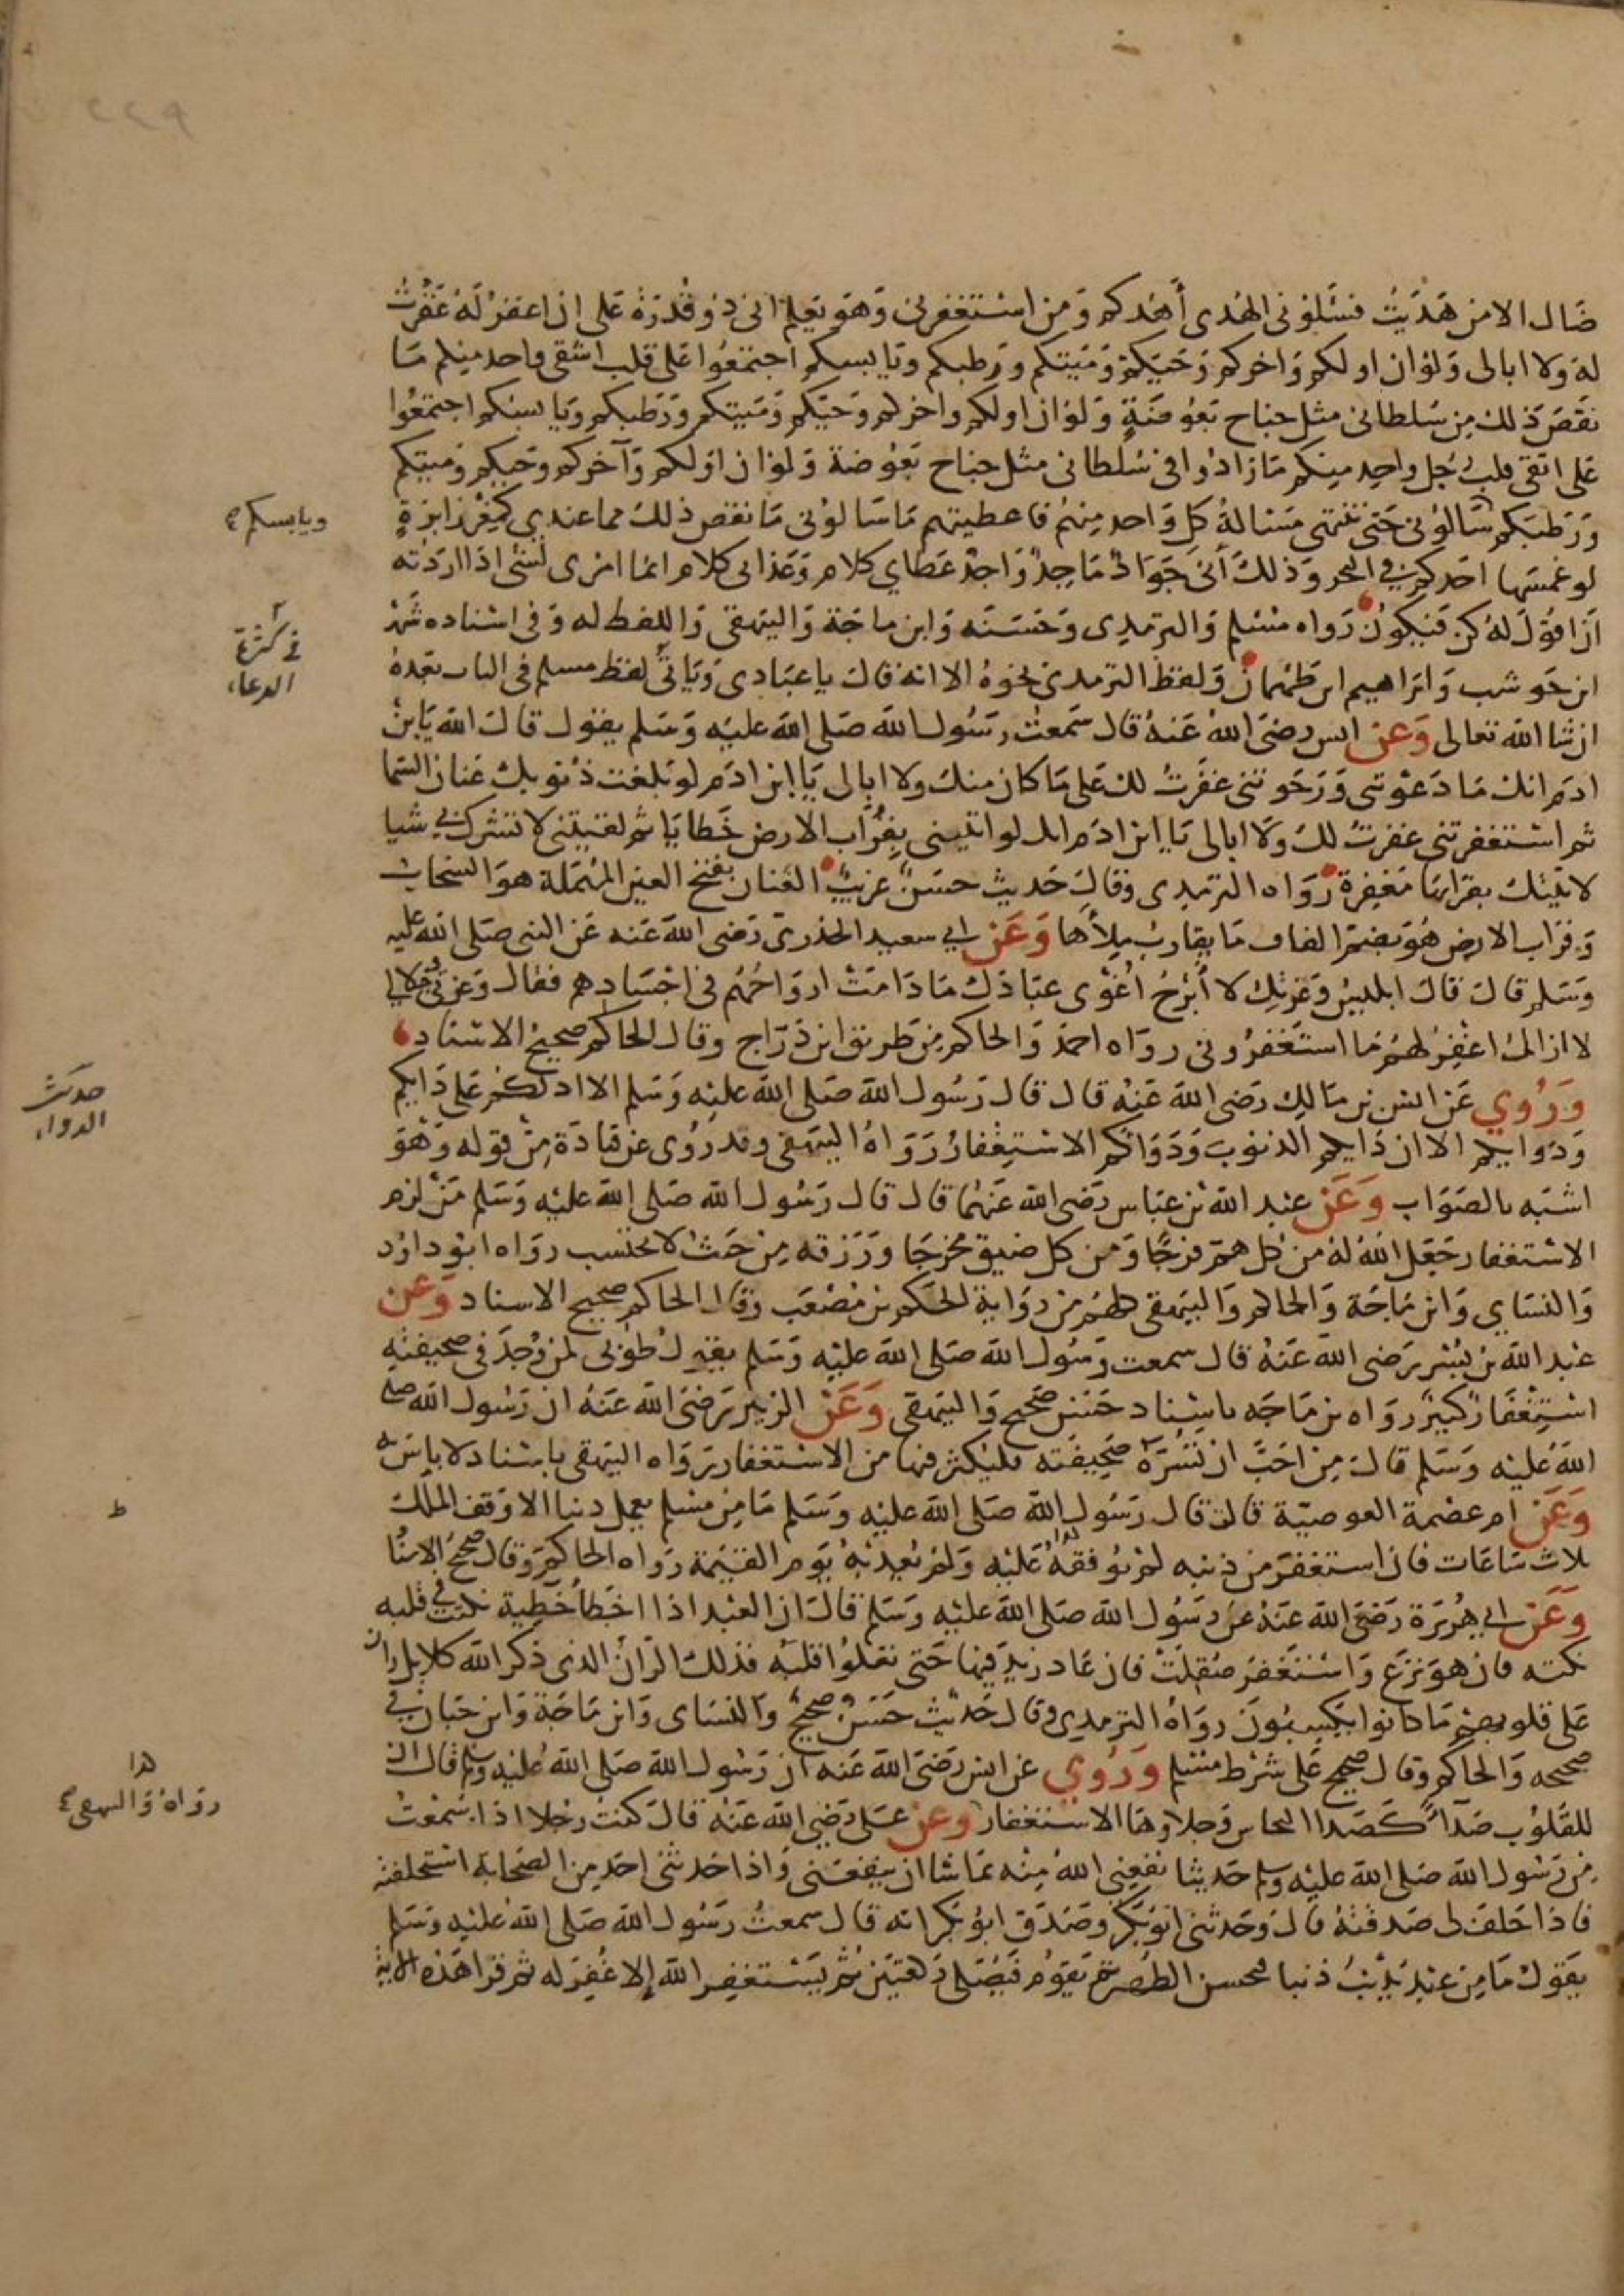 ٢٢٩
ضال الا من هديت فسلونى الهدى أهدكم ومن استغفرنى وهو يعلم انى ذو قدرة على ان اغفر له غفرت
له ولا ابالى ولو ان اولكم واخركم وحيكم وميتكم ورطبكم ويابسكم اجتمعوا على قلب اشقى واحد منكم ما
نقص ذلك من سلطانى مثل جناح بعوضة ولو ان اولكم واخركم وحيكم وميتكم ورطبكم ويابسكم اجتمعوا
على اتقى قلب رجل واحد منكم ما زادوا فى سلطانى مثل جناح بعوضة ولو ان اولكم وآخركم وحيكم وميتكم
ورطبكم سالونى حتى تنتهى مسالة كل واحد منهم فاعطيتهم ما سالونى ما نقص ذلك مما عندى كمغرز ابرة
ويابسكم
لو غمسها احدكم فى البحر وذلك أنى جواد ماجد واجد عطاى كلام وعذابى كلام انما امرى لشى اذا اردته
ان اقول له كن فيكون رواه مسلم والترمذى وحسنه وابن ماجة والبيهقى واللفظ له وفى اسناده شهر
فى كثرة
الدعاء
ابن حوشب وابراهيم ابن طهمان ولفظ الترمذى نحوه الا انه قال يا عبادى وياتى لفظ مسلم فى الباب بعده
ان شا الله تعالى وعن انس رضى الله عنه قال سمعت رسول الله صلى الله عليه وسلم يقول قال الله يا بن
ادم انك ما دعوتنى ورجوتنى غفرت لك على ما كان منك ولا ابالى يا ابن ادم لو بلغت ذنوبك عنان السما
ثم استغفرتنى غفرت لك ولا ابالى يا ابن ادم انك لو اتيتنى بقراب الارض خطايا ثم لقيتنى لا تشرك بى شيا
لاتيتك بقرابها مغفرة رواه الترمذى وقال حديث حسن غريب العنان بفتح العين المهملة هو السحاب
وقراب الارض هو بضم القاف ما يقارب ملأها وعن ابى سعيد الخدرى رضى الله عنه عن النبى صلى الله عليه
وسلم قال قال ابليس وعزتك لا أبرح اغوى عبادك ما دامت ارواحهم فى اجسادهم فقال وعزتى وجلالى
لا ازال اغفر لهم ما استغفرونى رواه احمد والحاكم من طريق ابن دراج وقال الحاكم صحيح الاسناد
وروى عن انس بن مالك رضى الله عنه قال قال رسول الله صلى الله عليه وسلم الا ادلكم على دايكم
حديث
الدواء
ودوايكم الا ان دايكم الذنوب ودواكم الاستغفار رواه البيهقى وقد روى عن قتادة من قوله وهو
اشبه بالصواب وعن عبد الله بن عباس رضى الله عنهما قال قال رسول الله صلى الله عليه وسلم من لزم
الاستغفار جعل الله له من كل هم فرجا ومن كل ضيق مخرجا ورزقه من حيث لا يحتسب رواه ابو داود
والنساى وابن ماجة والحاكم والبيهقى كلهم من رواية الحكم بن مصعب وقال الحاكم صحيح الاسناد وعن
عبد الله بن بشر رضى الله عنه قال سمعت رسول الله صلى الله عليه وسلم يقول طوبى لمن وجد فى صحيفته
استغفار كبير رواه بن ماجه باسناد حسن صحيح والبيهقى وعن الزبير رضى الله عنه ان رسول الله صلى
الله عليه وسلم قال من احب ان تسره صحيفته فليكثر فيها من الاستغفار رواه البيهقى باسناد لا باس به
وعن ام عصمة العوصية قالت قال رسول الله صلى الله عليه وسلم ما من مسلم يعمل ذنبا الا وقف الملك
ط
ثلاث ساعات فان استغفر من ذنبه لم يوقفه عليه ولم يعذبه يوم القيمة رواه الحاكم وقال صحيح الاسنا
وعن ابى هريرة رضى الله عنه عن رسول الله صلى الله عليه وسلم قال ان العبد اذا اخطأ خطية نكتت فى قلبه
نكتة فان هو نزع واستغفر صقلت فان عاد زيد فيها حتى تعلوا قلبه فذلك الران الذى ذكر الله كلا بل ران
على قلوبهم ما كانوا يكسبون رواه الترمذى وقال حديث حسن صحيح والنساى وابن ماجة وابن حبان فى
صحيحه والحاكم وقال صحيح على شرط مسلم وروى عن انس رضى الله عنه ان رسول الله صلى الله عليه وسلم قال ان
هذا
رواه والبيهقى
للقلوب صدآ كصدا النحاس وجلاوها الاستغفار وعن على رضى الله عنه قال كنت رجلا اذا سمعت
من رسول الله صلى الله عليه وسلم حديثا نفعنى الله منه بما شا ان ينفعنى واذا حدثنى احد من الصحابة استحلفته
فاذا حلف لى صدقته قال وحدثنى ابو بكر وصدق ابو بكر انه قال سمعت رسول الله صلى الله عليه وسلم
يقول ما من عبد يذنب ذنبا فيحسن الطهر ثم يقوم فيصلى ركعتين ثم يستغفر الله إلا غفر له ثم قرا هذه الاية